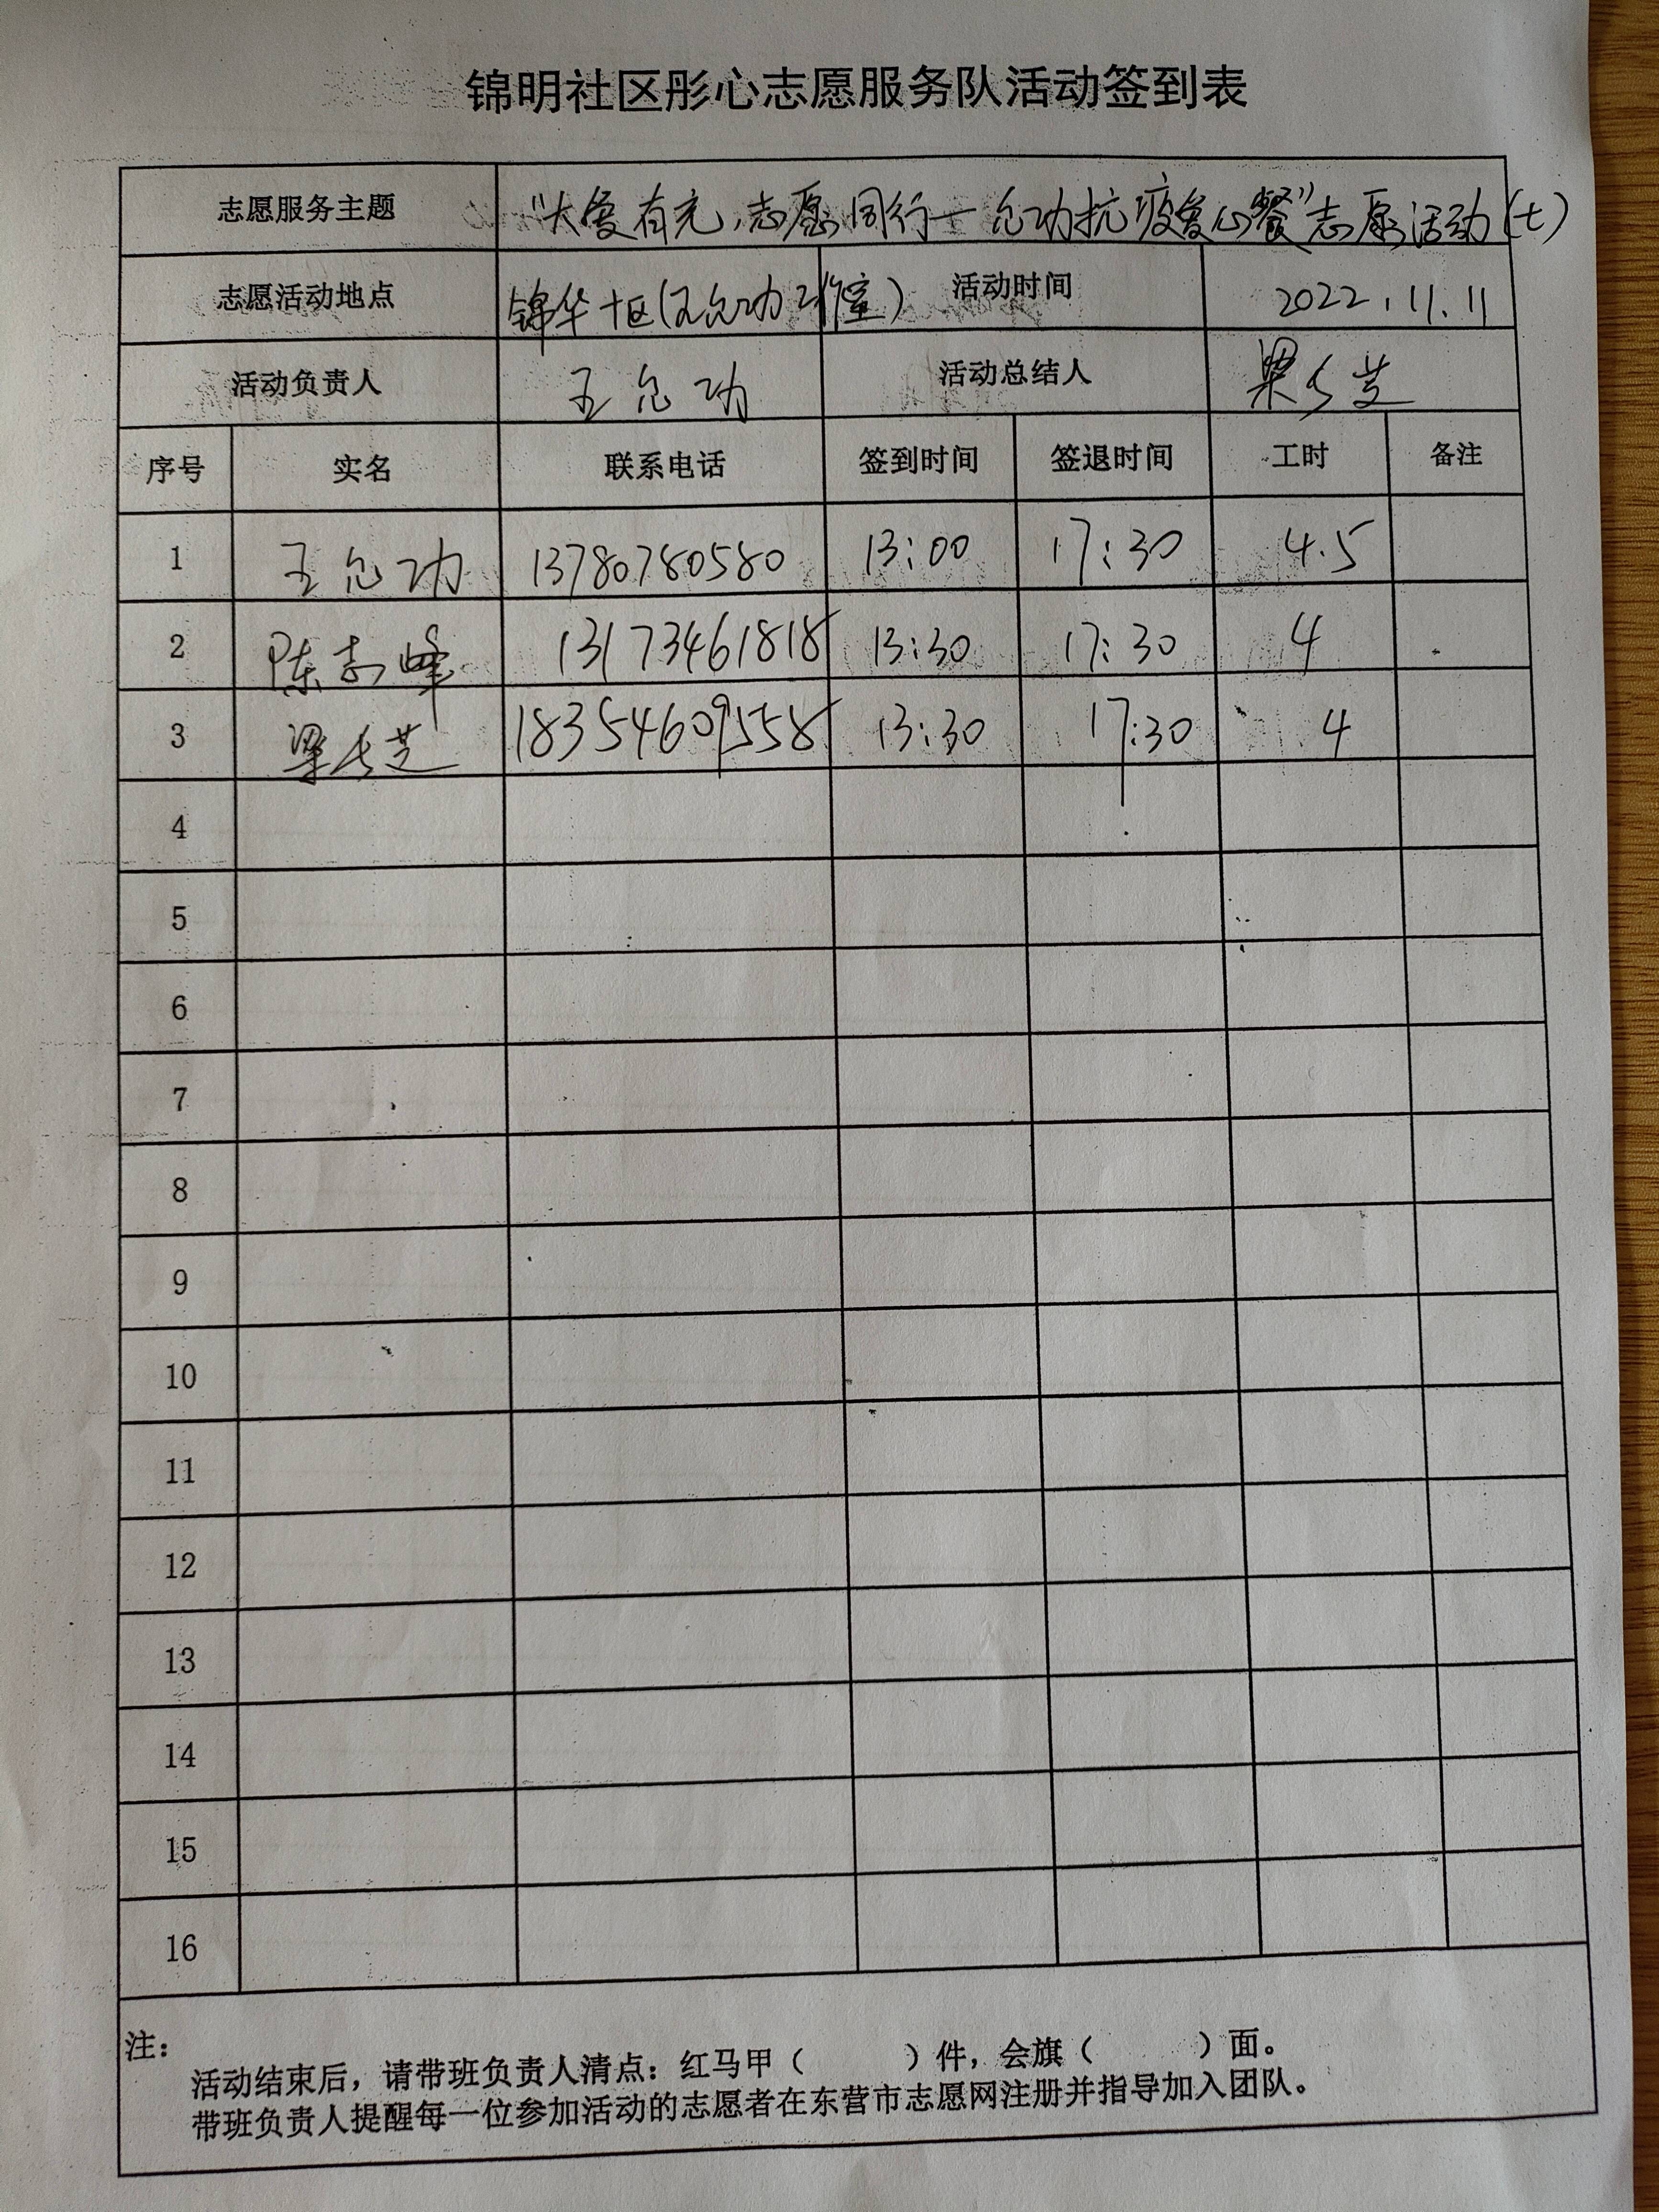 锦明社区彤心志愿服务队活动签到表
志愿服务主题 “大爱有光，志愿同行—允功抗疫爱心餐”志愿活动(七)
志愿活动地点 锦华十区(王允功工作室) 活动时间 2022.11.11
活动负责人 王允功 活动总结人 梁长芝
序号 实名 联系电话 签到时间 签退时间 工时 备注
1 王允功 13780780580 13:00 17:30 4.5
2 陈志峰 13173461818 13:30 17:30 4
3 梁长芝 18354609558 13:30 17:30 4
4
5
6
7
8
9
10
11
12
13
14
15
16
注：
活动结束后，请带班负责人清点：红马甲（ ）件，会旗（ ）面。
带班负责人提醒每一位参加活动的志愿者在东营市志愿网注册并指导加入团队。